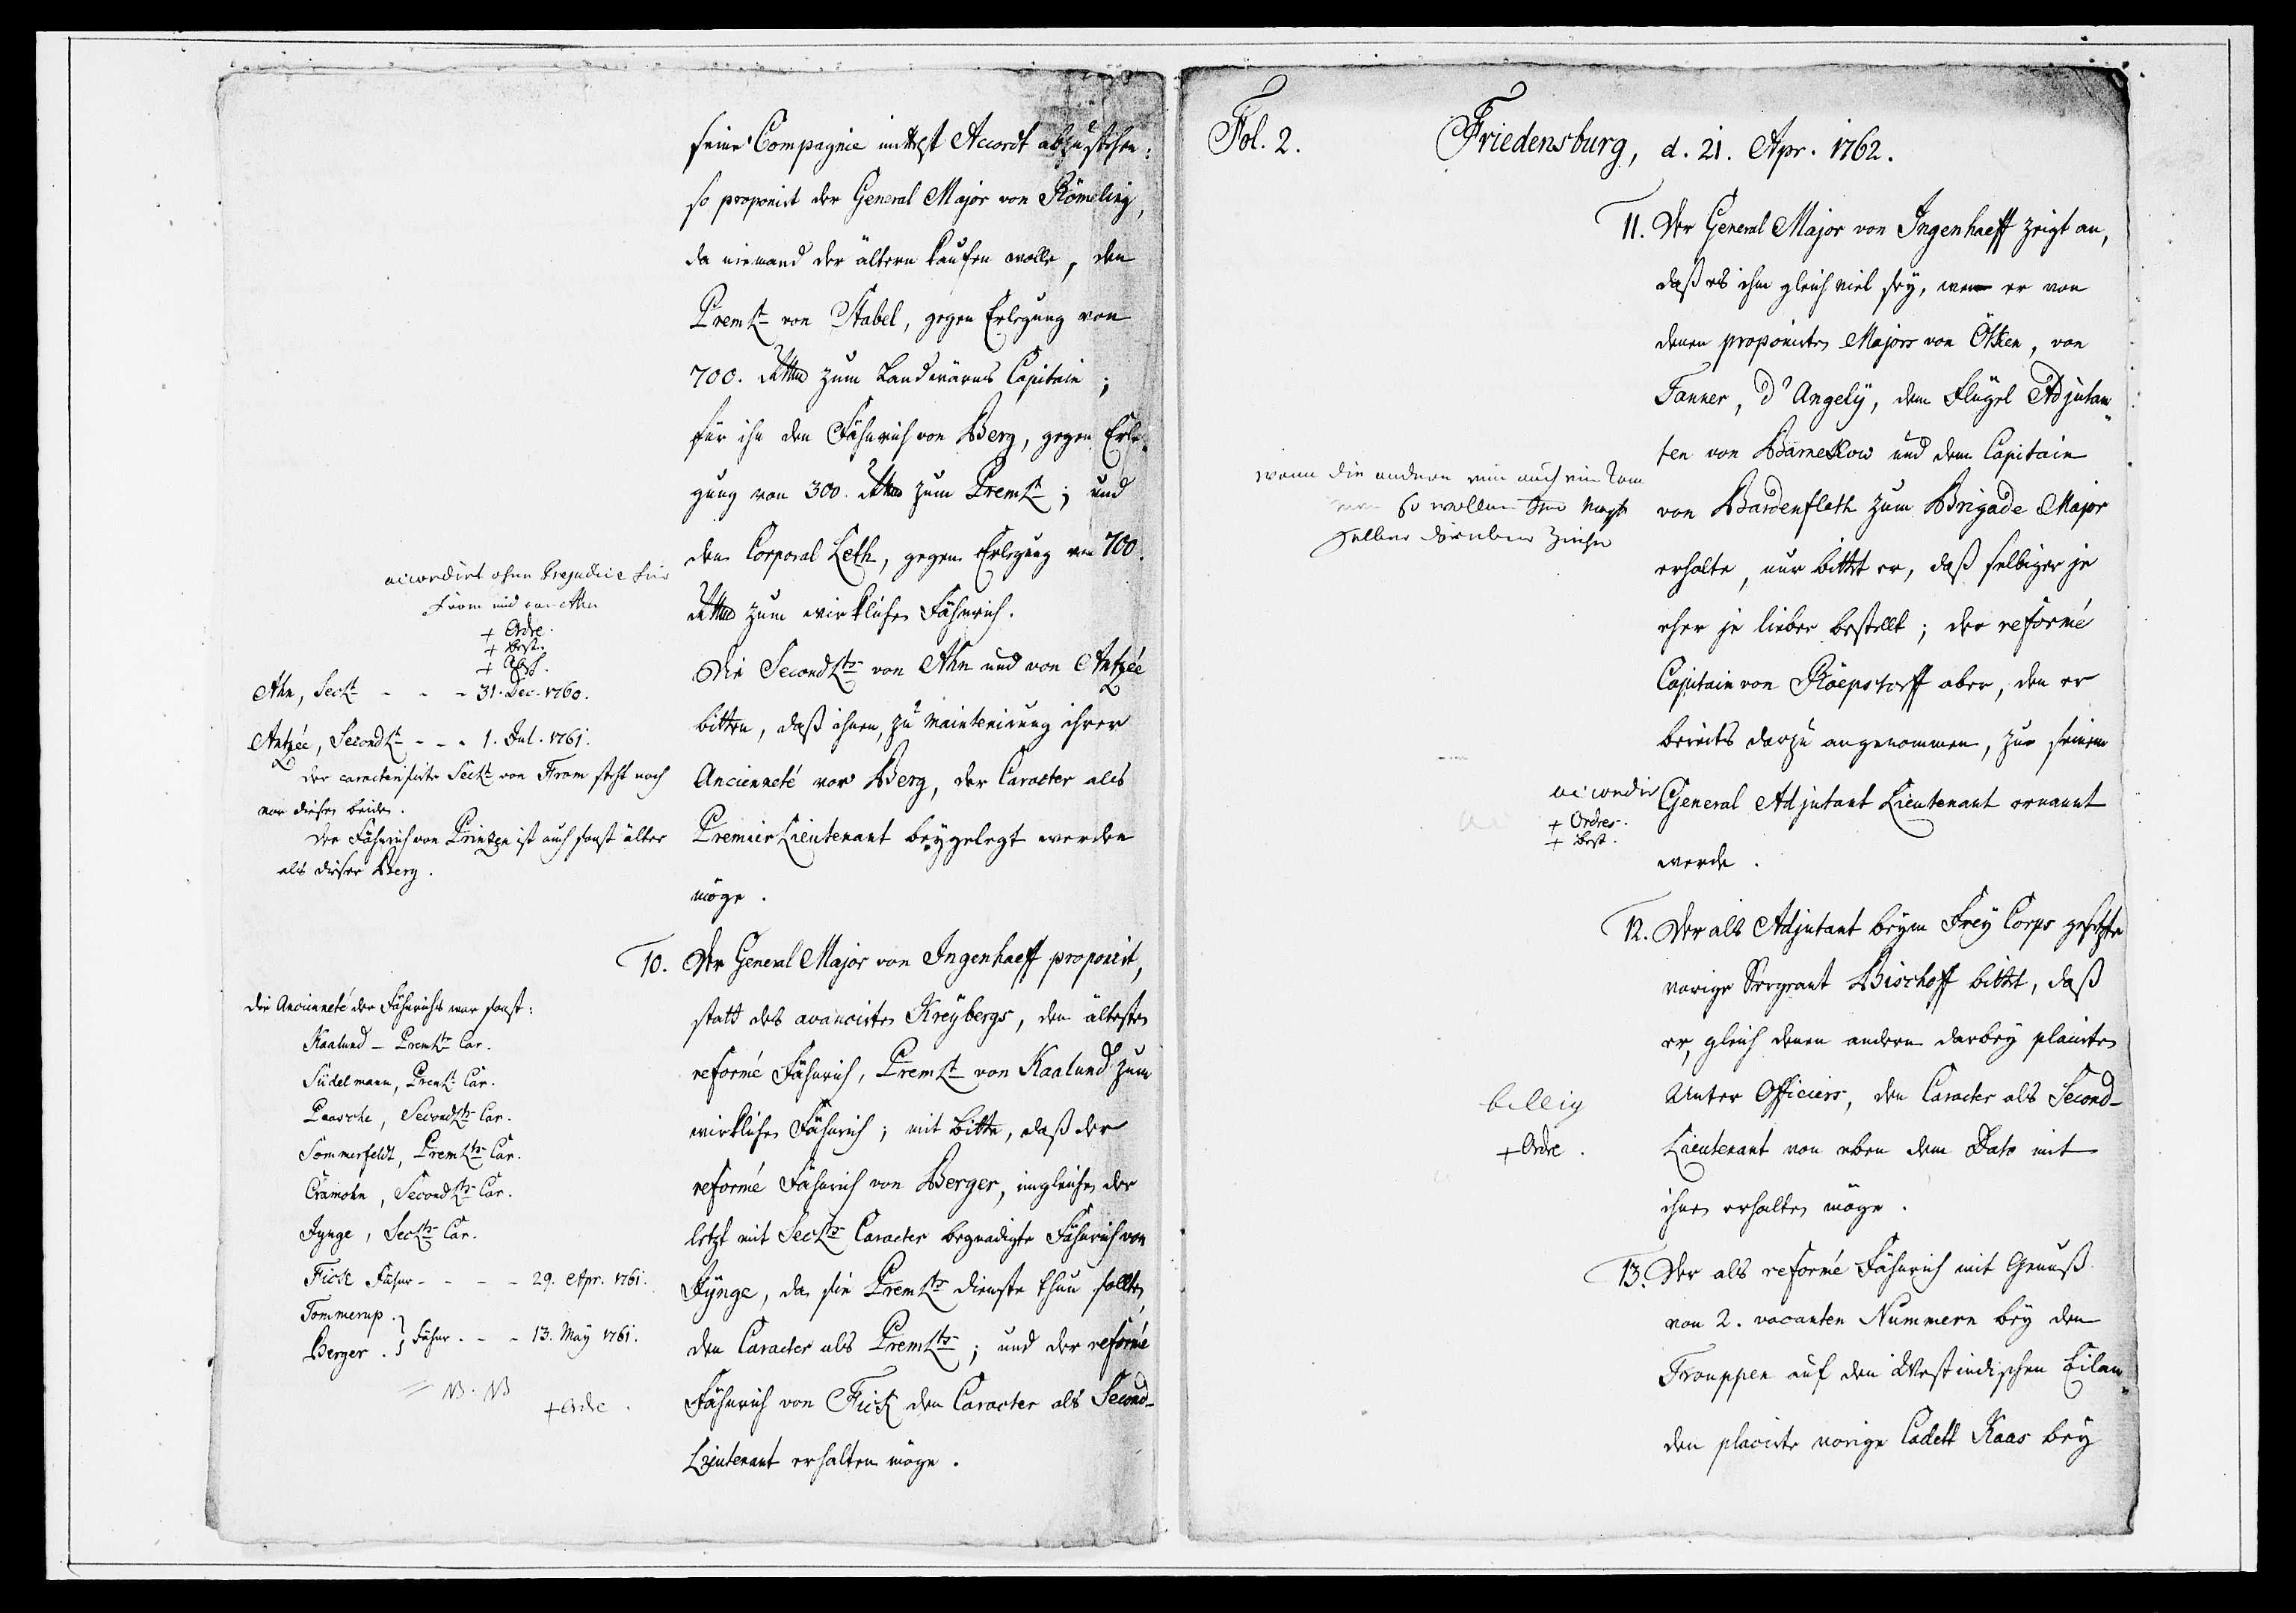 seine Compagnie mittelst Accordt abzustehen:
so proponirt der General Major von Römeling,
da niemand der ältern kaufen wolle, den
PremLt von Stabel, gegen Erlegung von
700. Rthlr zum Landwärns Capitain;
für ihn den Fähnrich von Berg, gegen Erle-
gung von 300. Rthlr zum PremLt; und
den Corporal Leth, gegen Erlegung von 700.
Rthlr zum wirklichen Fähnrich.
accordirt ohne Prejudice für
From und von Ahn
+ Ordre.
+ Best.
+ Absch.
Die SecondLts von Ahn und von Antzée
bitten, daß ihnen, zu Maintenirung ihrer
Ancienneté vor Berg, der Caracter als
Premier Lieutenant beygelegt werden
möge.
Ahn, SecLt - - - 31. Dec. 1760.
Antzée, SecondLt - - - 1. Jul. 1761.
Der caracterisirte SecLt von From steht noch
vor diesen beiden.
Der Fähnrich von Printzen ist auch sonst älter
als dieser Berg.
10. Der General Major von Ingenhaeff proponirt,
statt des avancirten Kreybergs, den ältesten
reformé Fähnrich, PremLt von Kaalund zum
wirklichen Fähnrich; mit Bitte, daß der
reformé Fähnrich von Berger, imgleichen der
letzt mit SecLts Caracter begnadigte Fähnrich von
Jynge, da sie PremLts Dienste thun sollen,
den Caracter als PremLts; und der reformé
Fähnrich von Fick den Caracter als Second-
Lieutenant erhalten möge.
Die Ancienneté der Fähnrichs war sonst:
Kaalund - PremLts Car.
Südelmann, PremLt Car.
Paasche, SecondLts Car.
Sommerfeldt, PremLts Car.
Cramohn, SecondLts Car.
Jynge, SecLts Car.
Fick Fähnr - - - - 29. Apr. 1761.
Tommerup.
Berger. } Fähnr. - - 13. May 1761.
NB. NB
+ Ordre.
Fol. 2.
Friedensburg, d. 21. Apr. 1762.
11. Der General Major von Ingenhaeff zeigt an,
daß es ihm gleich viel sey, wen er von
denen proponirten Majors von Ötken, von
Tanner, d'Angely, dem Flügel Adjutan-
ten von Barnekow und dem Capitain
von Bardenfleth zum Brigade Major
erhalte, nur bittet er, daß selbiger je
eher je lieber bestellt; der reformé
Capitain von Röepstorff aber, den er
bereits darzu angenommen, zu seinem
General Adjutant Lieutenant ernannt
werde.
wenn die andern
so wollen
selber darüber
accordir
+ Ordres.
+ Best.
12. Der als Adjutant beym Frey Corps gesetzte
vorige Sergeant Bischoff bittet, daß
er, gleich denen andern darbey placirten
Unter Officiers, den Caracter als Second-
Lieutenant von eben dem Dato mit
ihnen erhalten möge.
billig
+ Ordre.
13. Der als reformé Fähnrich mit Genuß
von 2. vacanten Nummern bey den
Trouppen auf den Westindischen Eilan-
den placirte vorige Cadett Kaas bey